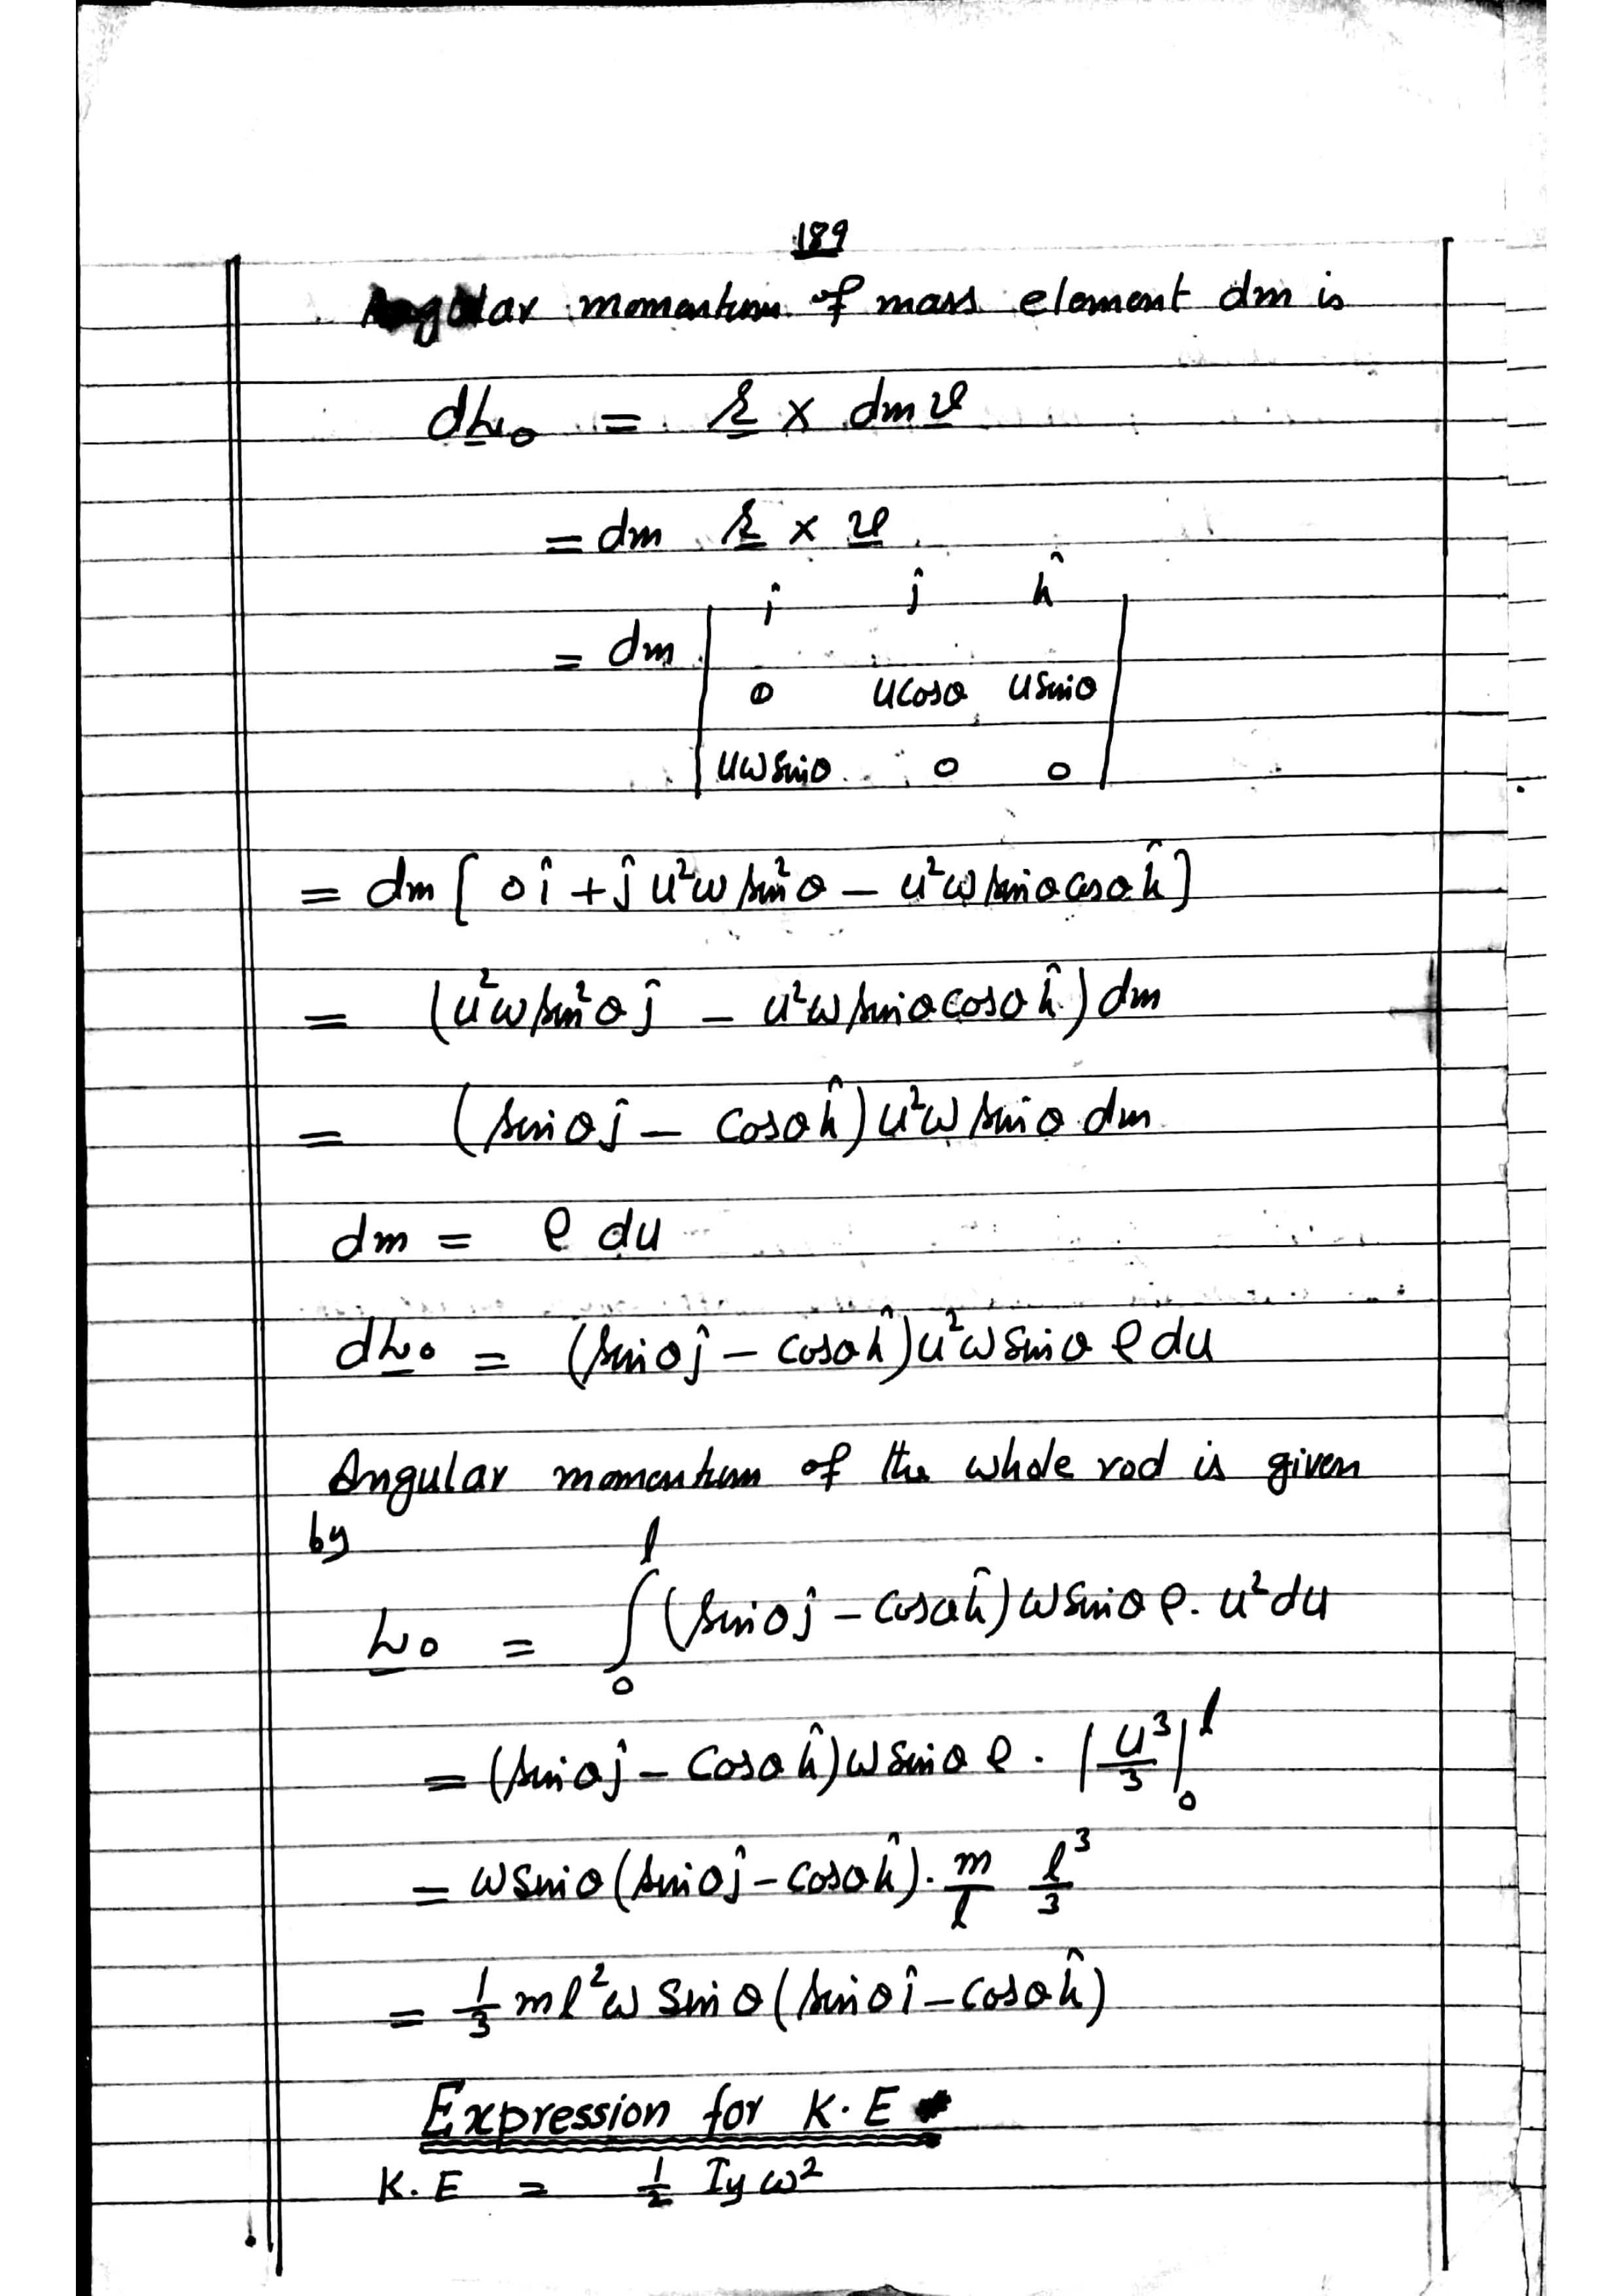 189
Angular momentum of mass element dm is
dL₀ = r × dm v
= dm r × v
= dm | i ĵ k̂ |
| 0 ucosθ usinθ |
| uωsinθ 0 0 |
= dm [ 0î + ĵ u²ω sin²θ – u²ω sinθcosθ k̂ ]
= (u²ω sin²θ ĵ – u²ω sinθcosθ k̂) dm
= (sinθ ĵ – cosθ k̂) u²ω sinθ dm
dm = ρ du
dL₀ = (sinθ ĵ – cosθ k̂) u²ω sinθ ρ du
Angular momentum of the whole rod is given
by
L₀ = ∫₀ˡ (sinθ ĵ – cosθ k̂) ω sinθ ρ. u² du
= (sinθ ĵ – cosθ k̂) ω sinθ ρ . |u³/3|₀ˡ
= ω sinθ (sinθ ĵ – cosθ k̂) . m/l l³/3
= 1/3 ml²ω sinθ (sinθ î – cosθ k̂)
Expression for K.E
K.E = 1/2 Iy ω²